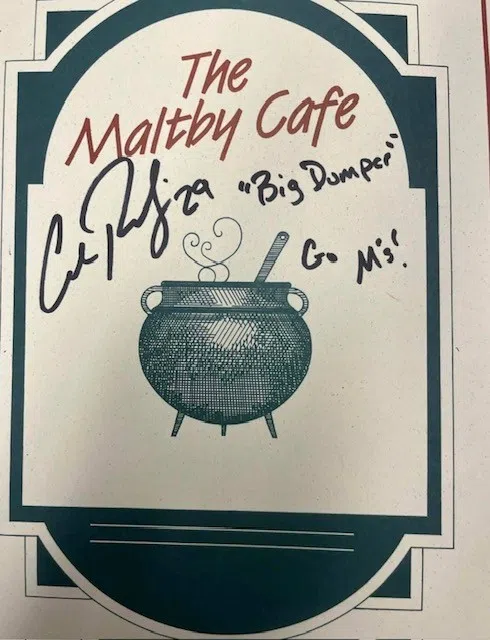 The
Maltby Cafe
Cal Raleigh 29 "Big Dumper"
Go M's!